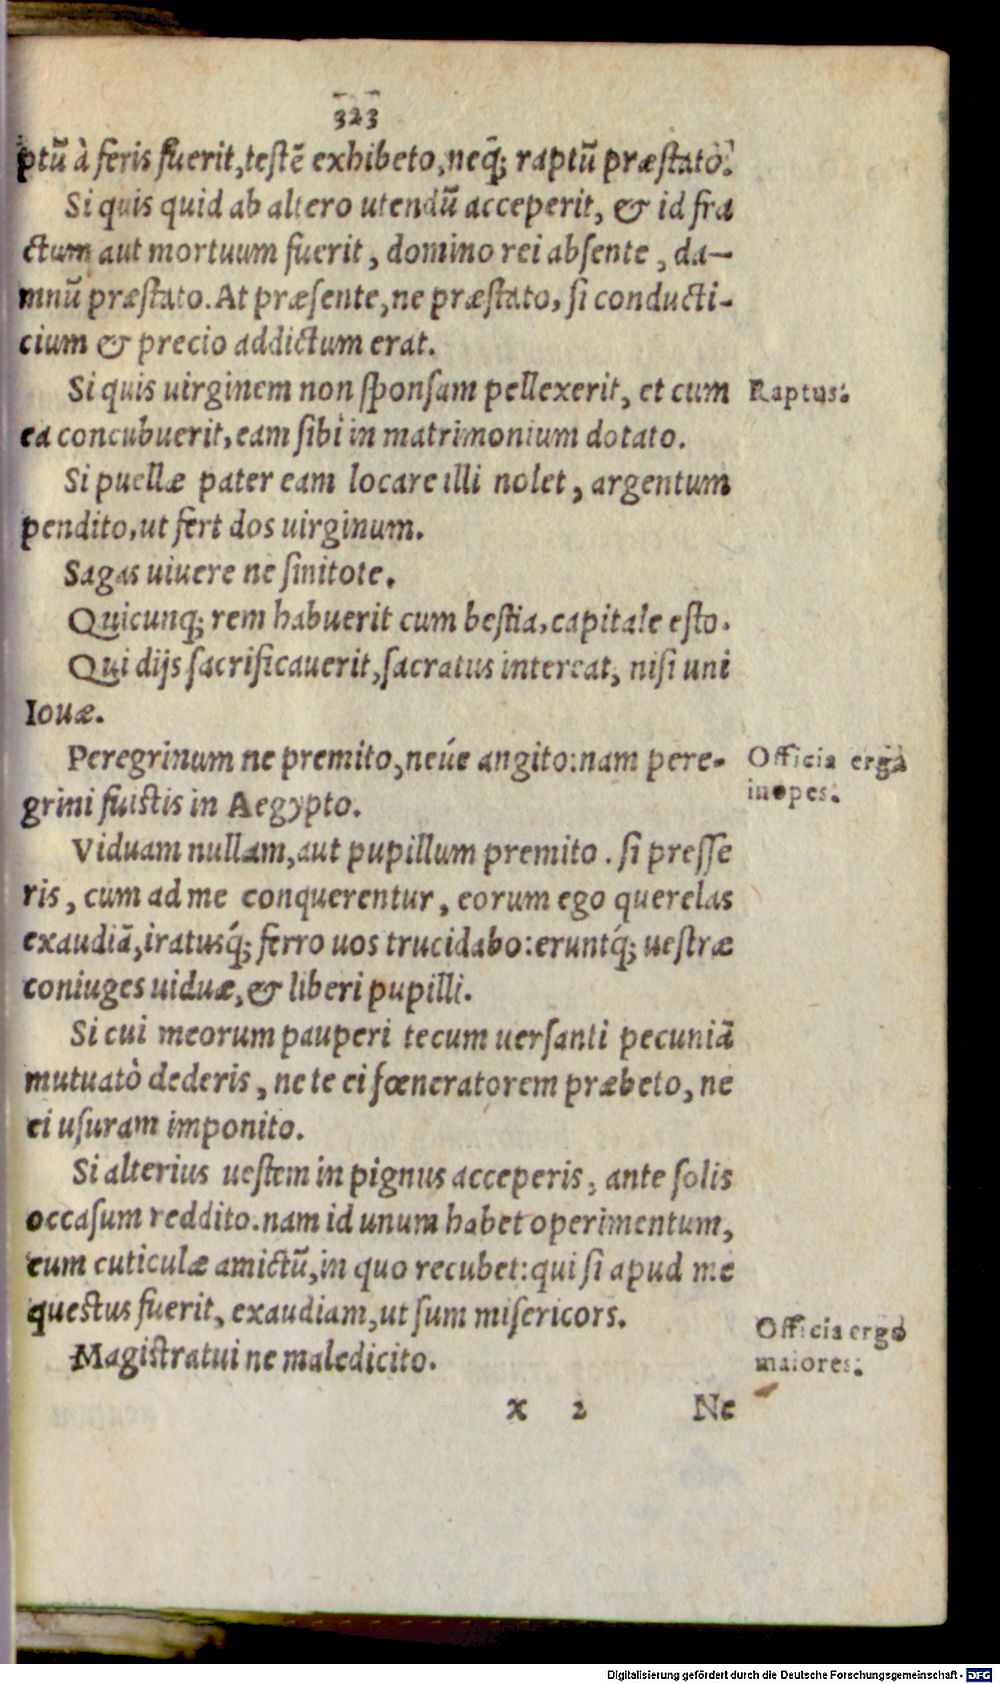 323
ptū à feris fuerit, testē exhibeto, neq́; raptū præstato.
Si quis quid ab altero utendū acceperit, & id fra
ctum aut mortuum fuerit, domino rei absente, da-
mnū præstato. At præsente, ne præstato, si conducti-
cium & precio addictum erat.
Si quis uirginem non sponsam pellexerit, et cum
ea concubuerit, eam sibi in matrimonium dotato.
Raptus.
Si puellæ pater eam locare illi nolet, argentum
pendito, ut fert dos uirginum.
Sagas uiuere ne sinitote.
Quicunq; rem habuerit cum bestia, capitale esto.
Qui dijs sacrificauerit, sacratus intereat, nisi uni
Iouæ.
Peregrinum ne premito, neúe angito: nam pere-
grini fuistis in Aegypto.
Officia erga
inopes.
Viduam nullam, aut pupillum premito. si presse
ris, cum ad me conquerentur, eorum ego querelas
exaudiā, iratusq́; ferro uos trucidabo: eruntq́; uestræ
coniuges uiduæ, & liberi pupilli.
Si cui meorum pauperi tecum uersanti pecuniā
mutuatò dederis, ne te ei fœneratorem præbeto, ne
ei usuram imponito.
Si alterius uestem in pignus acceperis, ante solis
occasum reddito. nam id unum habet operimentum,
eum cuticulæ amictū, in quo recubet: qui si apud me
questus fuerit, exaudiam, ut sum misericors.
Magistratui ne maledicito.
Officia erga
maiores.
x 2 Ne
Digitalisierung gefördert durch die Deutsche Forschungsgemeinschaft - DFG